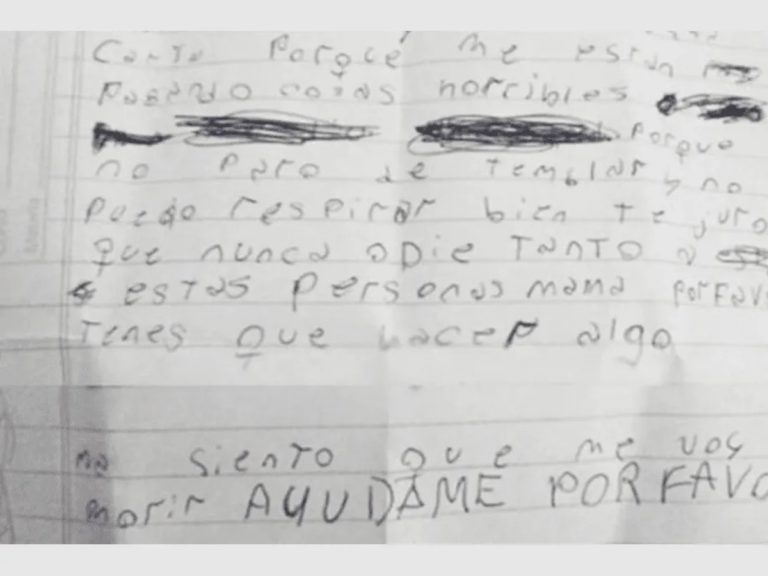 Carta porque me estan
pasando cosas horribles
porque
no paro de temblar y no
puedo respirar bien te juro
que nunca odie TanTO a
estas personas mama porFAV
Tenes que hacer algo
no siento que me voy
morir AYUDAME POR FAVO